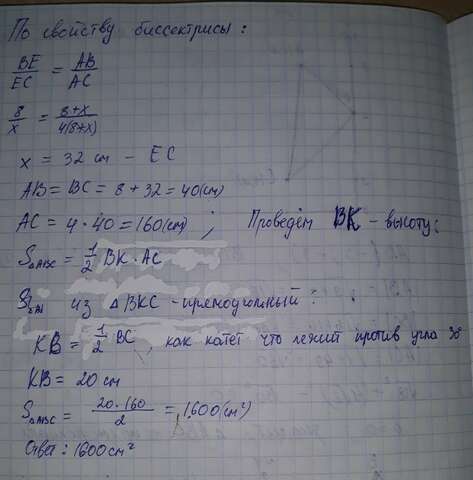 По свойству биссектрисы:
BE/EC = AB/AC
8/x = (8+x)/(4(8+x))
x = 32 см - EC
AB = BC = 8 + 32 = 40(см)
AC = 4 · 40 = 160(см) ; Проведём BK - высоту:
S△ABC = 1/2 BK · AC
из △ BKC - прямоугольный:
KB = 1/2 BC, как катет что лежит против угла 30°
KB = 20 см
S△ABC = (20·160)/2 = 1600(см²)
Ответ: 1600 см²